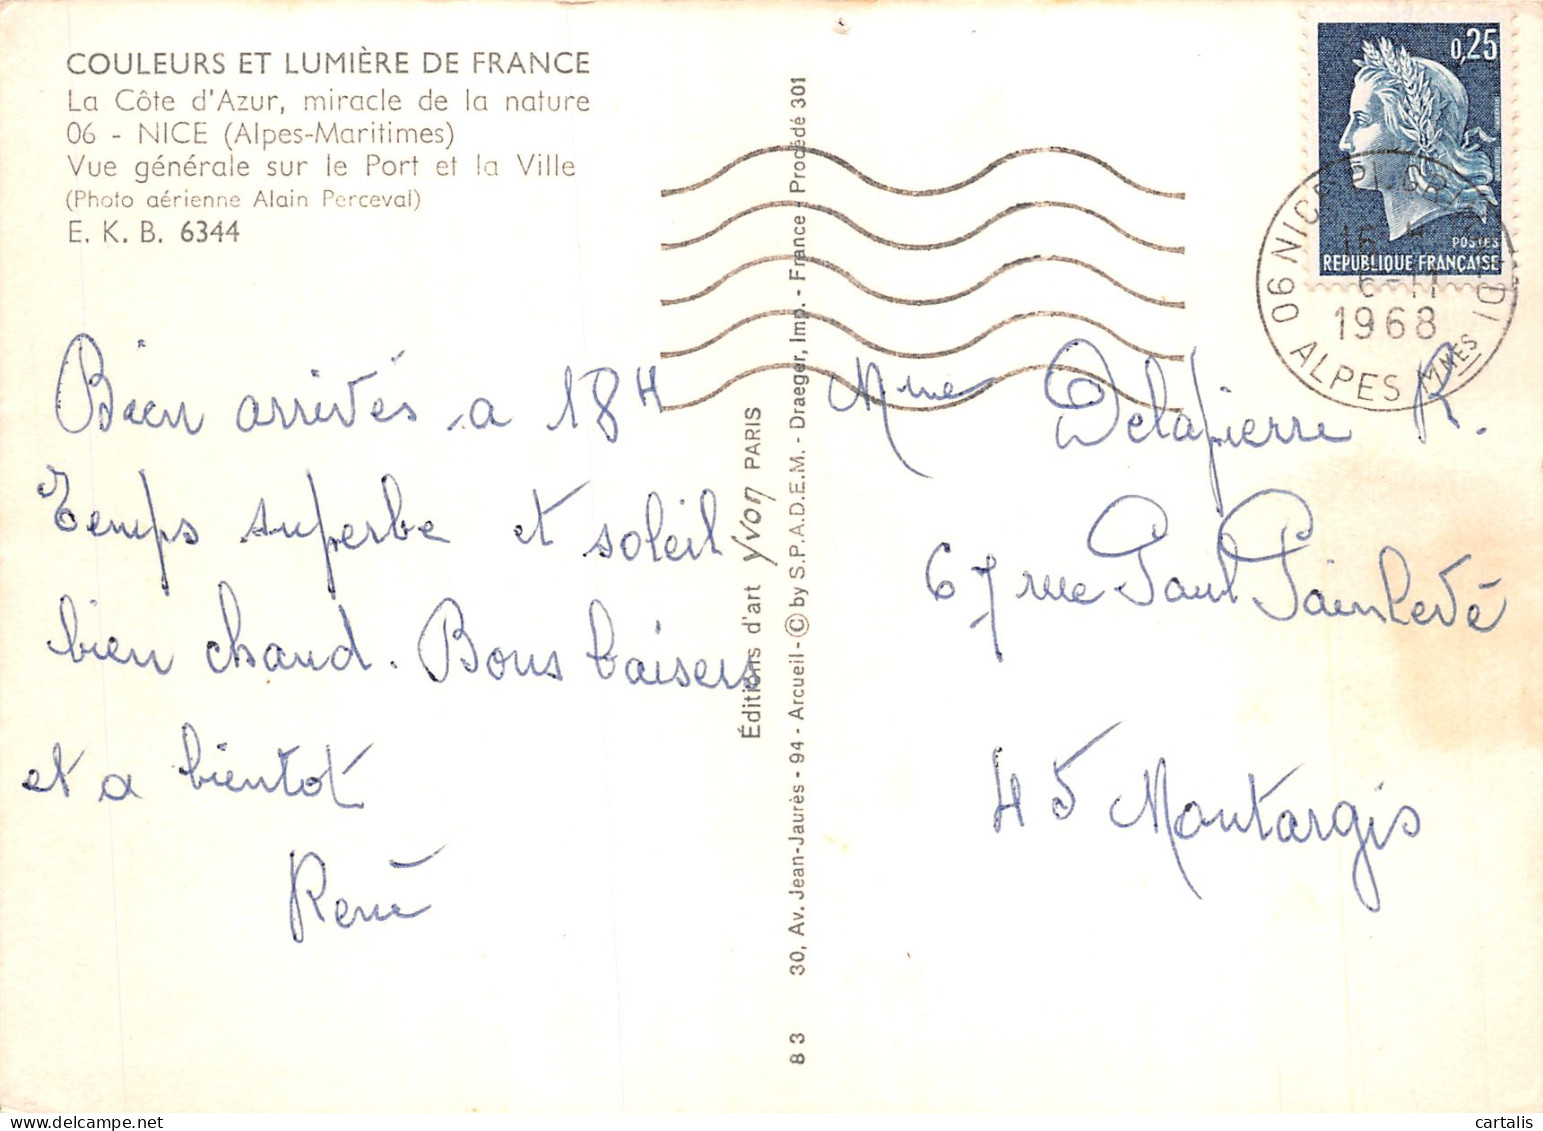 COULEURS ET LUMIÈRE DE FRANCE
La Côte d'Azur, miracle de la nature
06 - NICE (Alpes-Maritimes)
Vue générale sur le Port et la Ville
(Photo aérienne Alain Perceval)
E. K. B. 6344
Bien arrivés a 18H
Temps superbe et soleil
bien chaud. Bons baisers
et a bientot
René
Éditions d'art yvon PARIS
83 30, Av. Jean-Jaurès - 94 - Arcueil - © by S.P.A.D.E.M. - Draeger, Imp. - France - Procédé 301
0,25
POSTES
REPUBLIQUE FRANÇAISE
06 NICE
16 H
6-11
1968
ALPES MMES
Mme Delapierre R.
67 rue Paul Painlevé
45 Montargis
cartalis